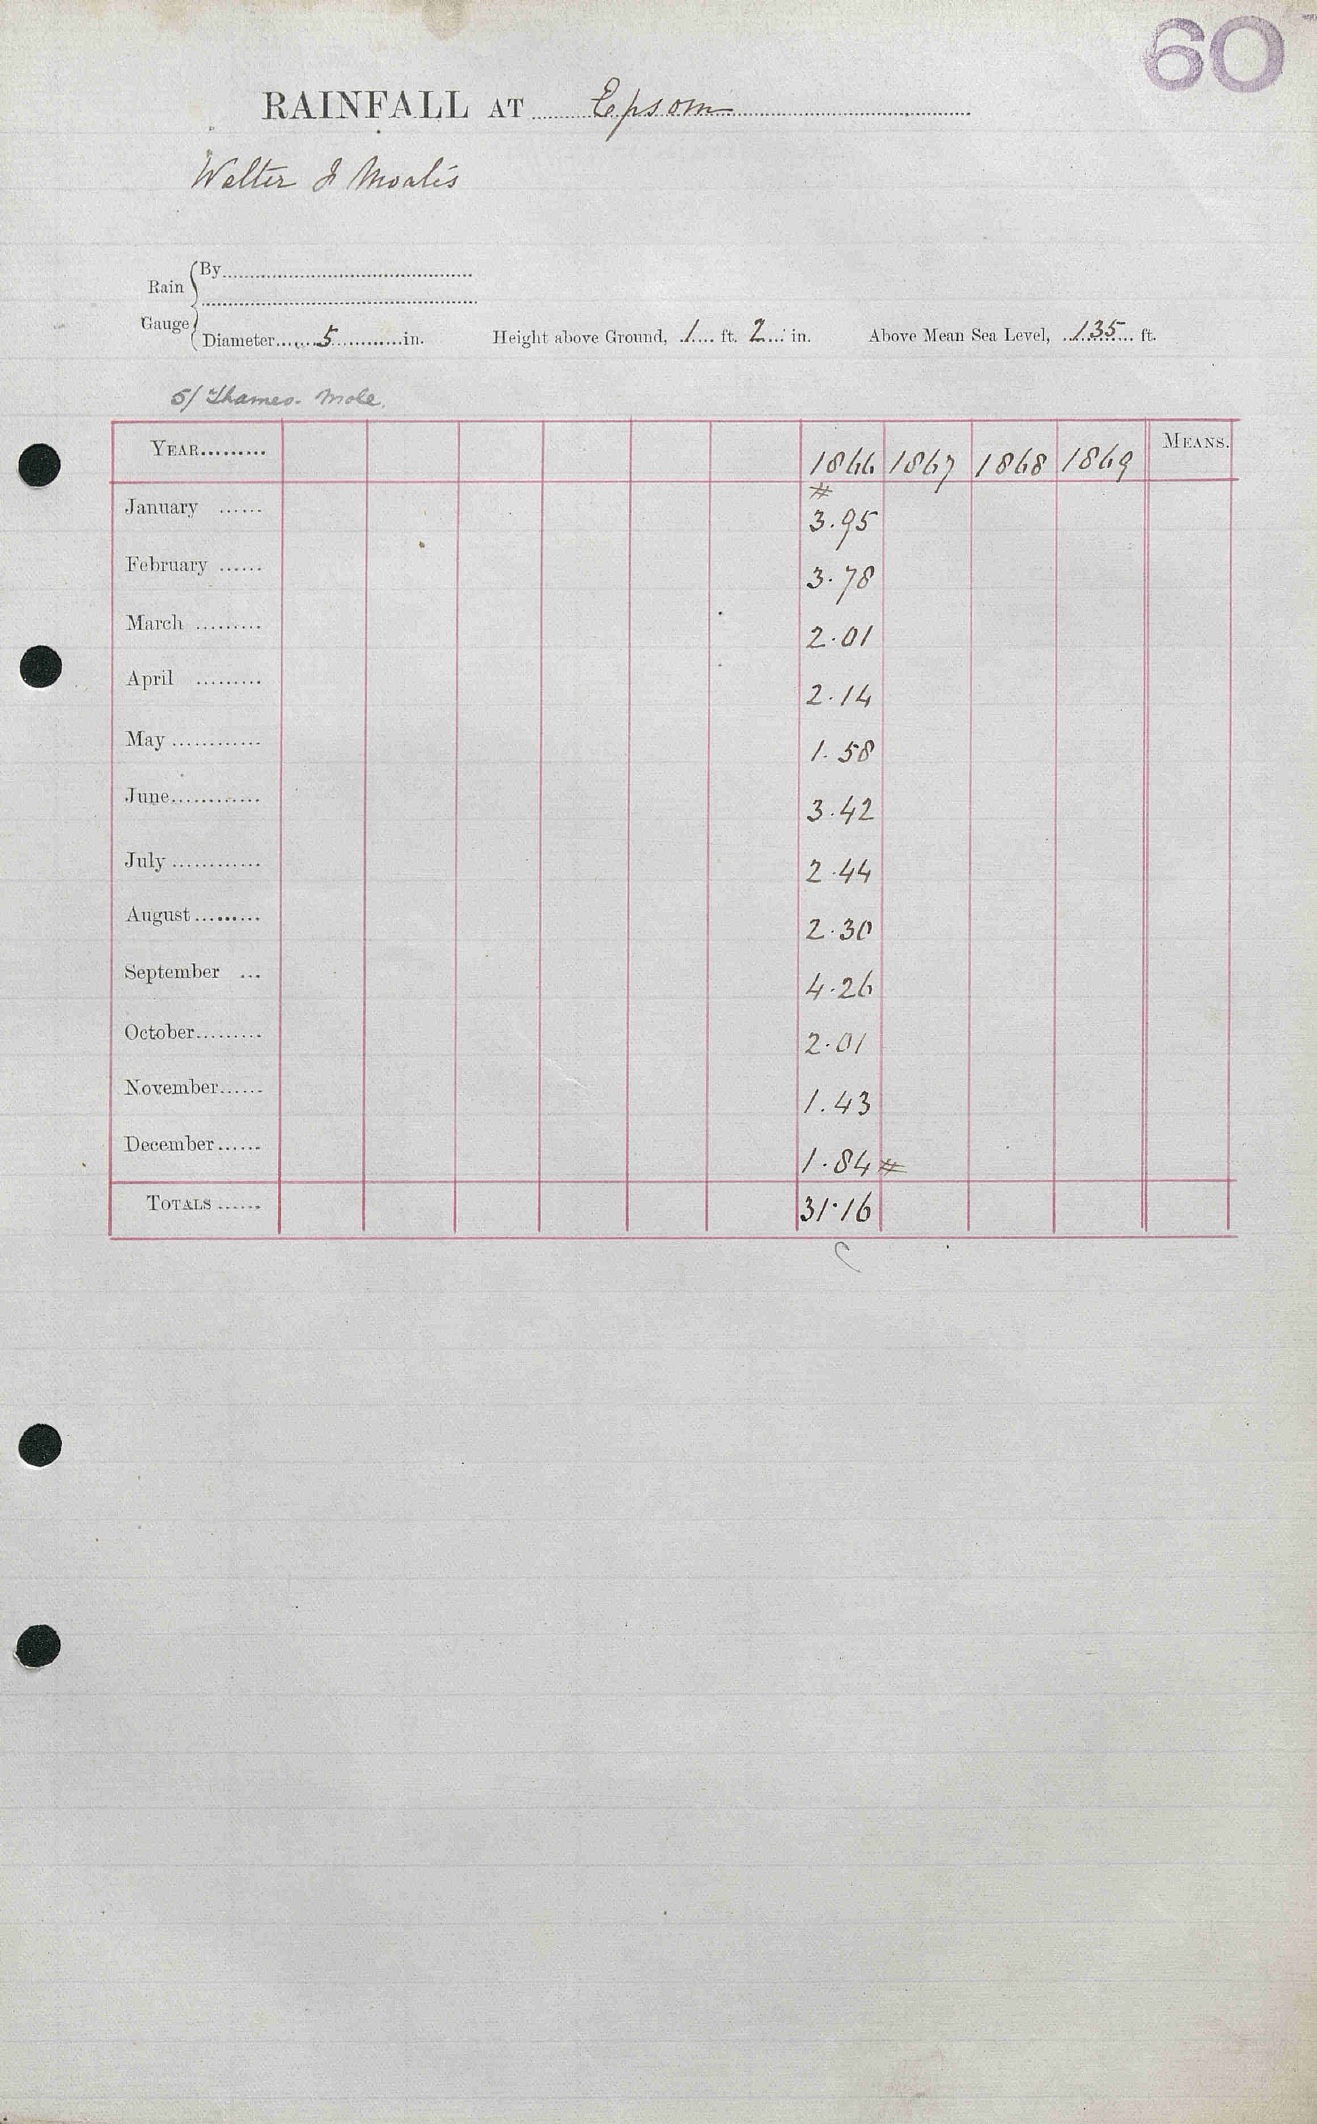 60
RAINFALL AT Epsom
Walter J
Rain Gauge { By
Diameter 5 in. Height above Ground, 1 ft. 2 in. Above Mean Sea Level, 135 ft.
5/ Thames. Mole.
YEAR 1866 1867 1868 1869 MEANS.
#
January 3.95
February 3.78
March 2.01
April 2.14
May 1.58
June 3.42
July 2.44
August 2.30
September 4.26
October 2.01
November 1.43
December 1.84 #
TOTALS 31.16
C